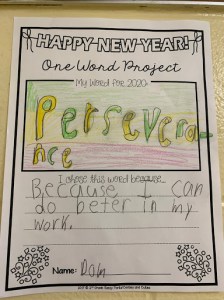 HAPPY NEW YEAR!
One Word Project
My Word for 2020:
Persevera-
nce
I chose this word because...
Because I can
do beter in my
work.
Name: Dom